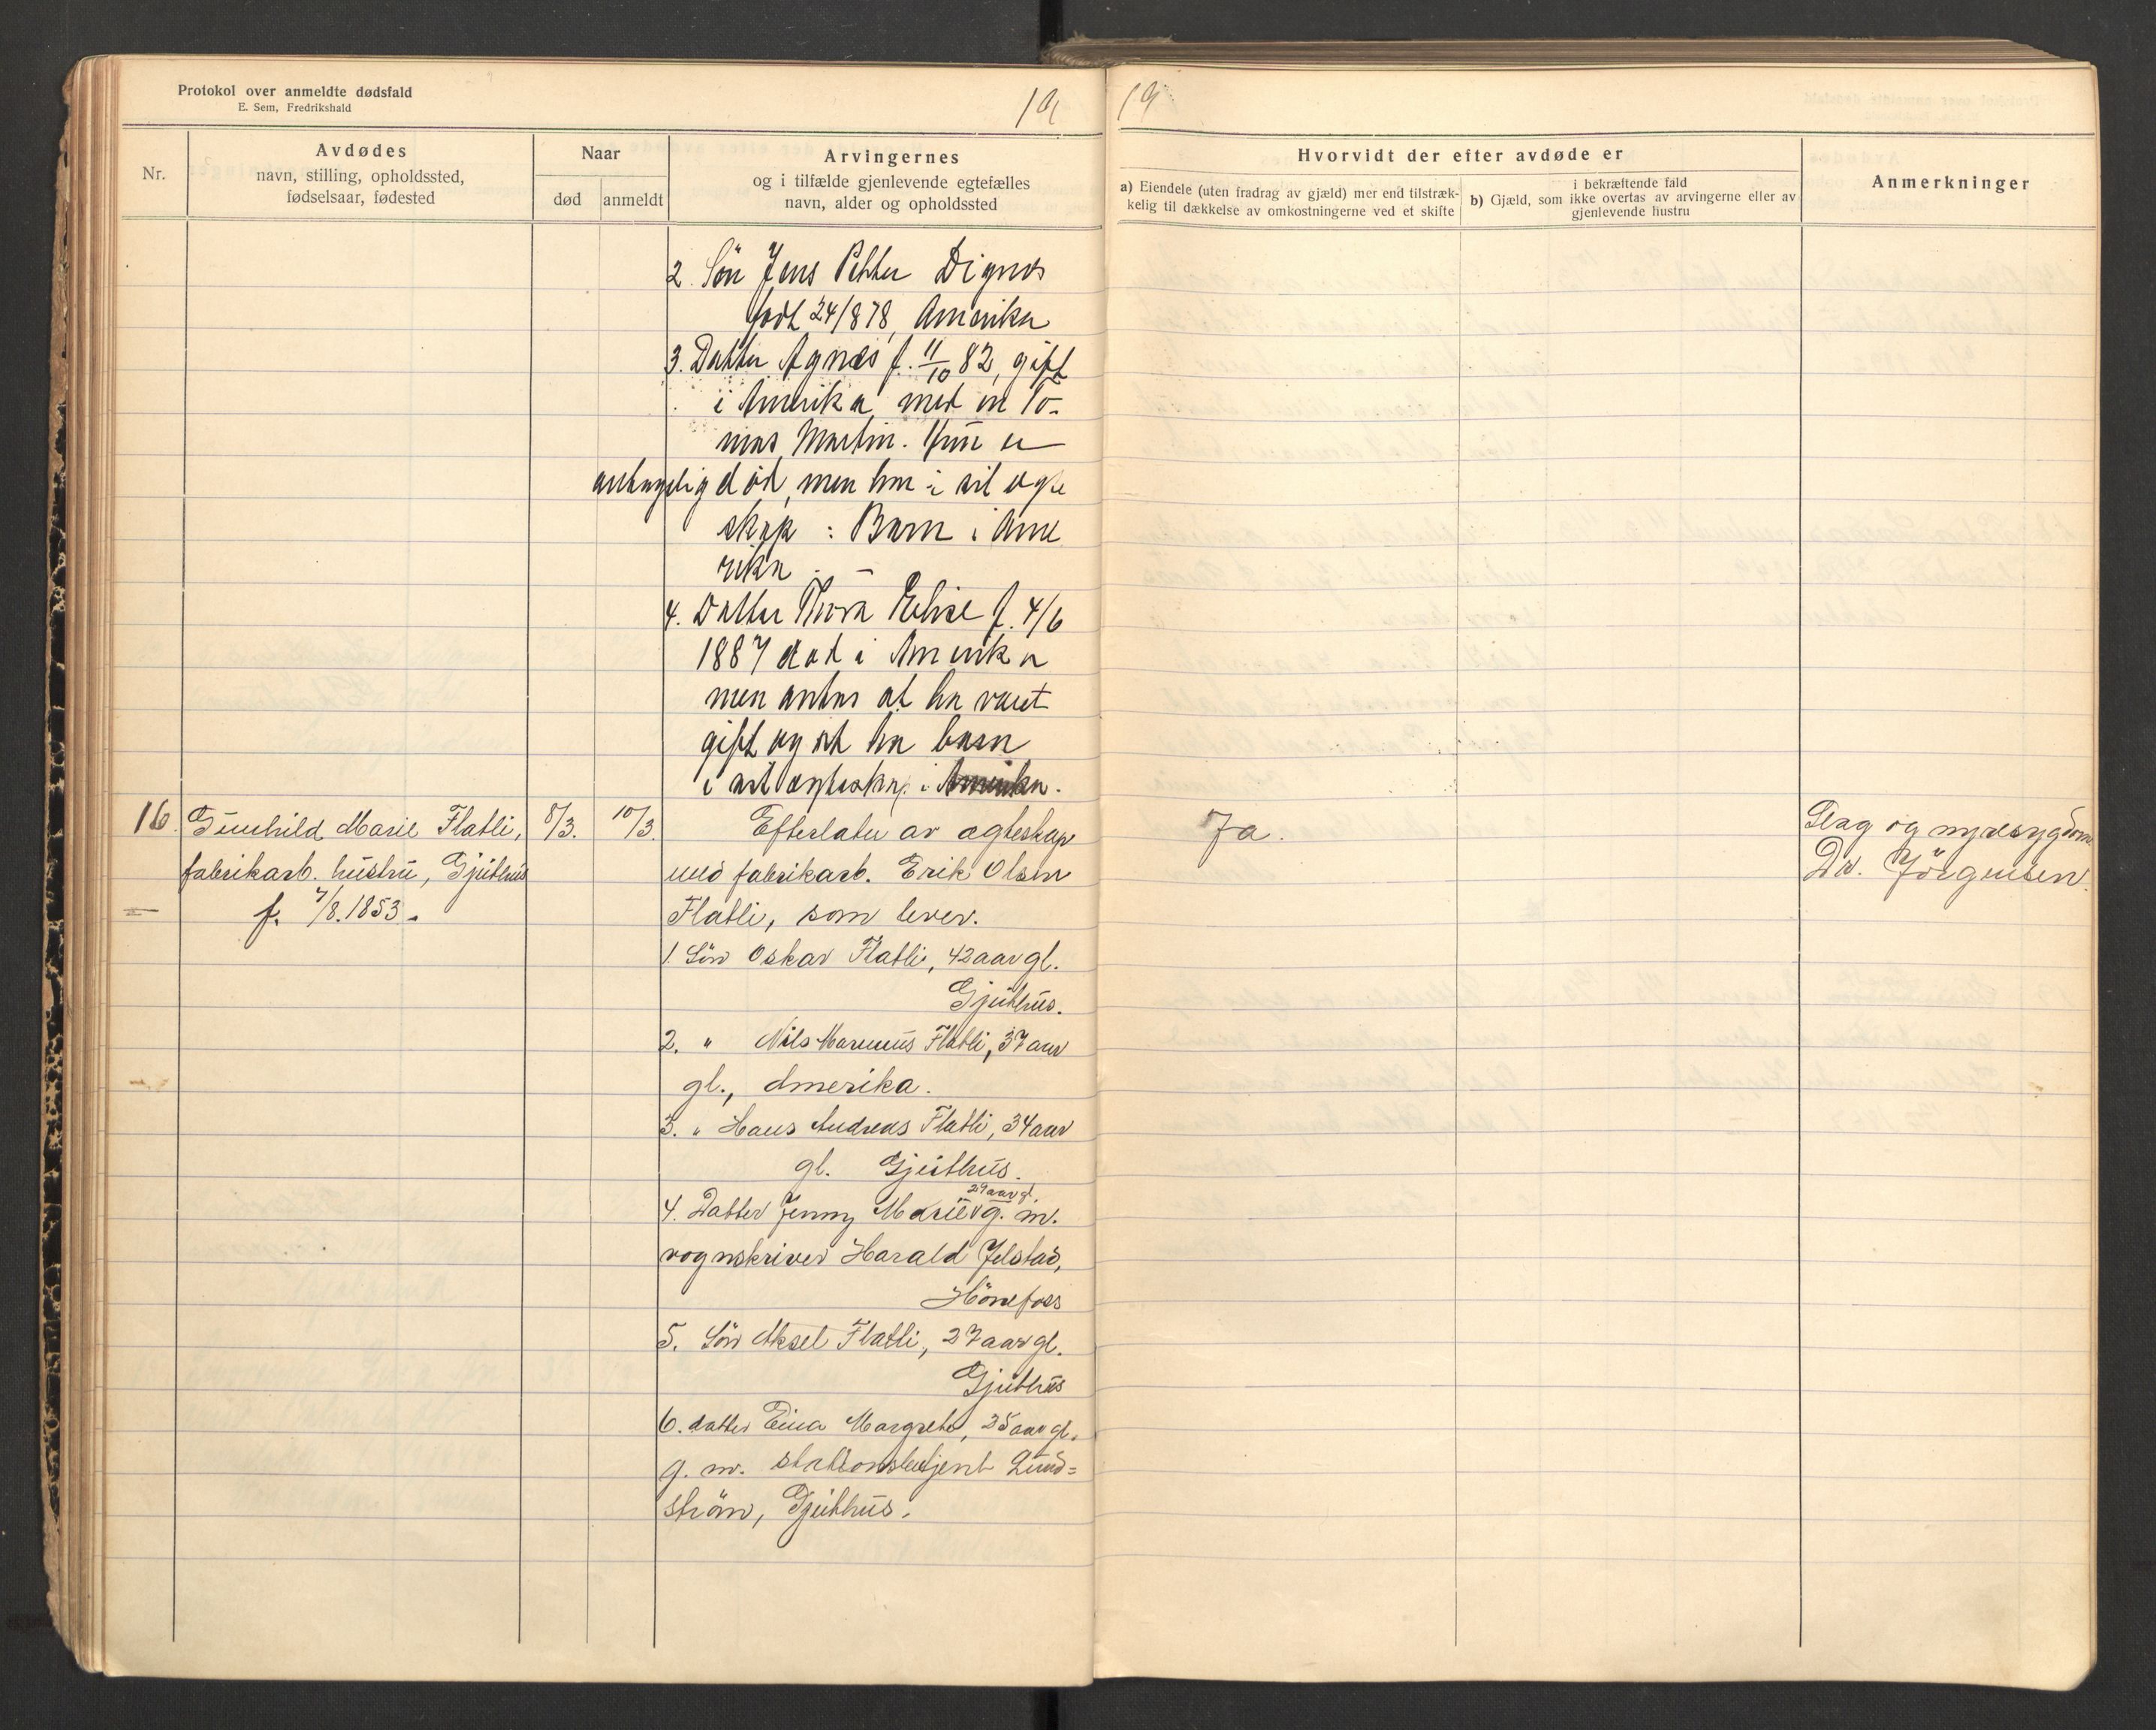 Protokol over anmeldte dødsfald
E. Sem, Fredrikshald
19
Nr.
Avdødes
navn, stilling, opholdssted,
fødselsaar, fødested
Naar
død
anmeldt
Arvingernes
og i tilfælde gjenlevende egtefælles
navn, alder og opholdssted
2. Sön Jens Petter Dignes
født 24/878, Amerika
3. Datter Agnes f. 11/10 82, gift
i Amerika med en To-
mas Martin. Hun er
antagelig död, men har i sit egte
skap : Barn i Ame
rika . —
4. Datter Thora Elise f. 4/6
1887 død i Amerika
men antas at ha været
gift og at ha barn
i sit egteskap i Amerika.
16. Gunhild Marie Flatli,
fabrikarb. hustru, Gjethus
f. 7/8. 1853.
8/3.
10/3.
Efterlater av ægteskap
med fabrikarb. Erik Olsen
Flatli, som lever.
1. Sön Oskar Flatli, 42 aar gl.
Gjethus.
2. " Nils Marinius Flatli, 37 aar
gl., Amerika.
3. " Hans Andreas Flatli, 34 aar
gl. Gjethus.
29 aar gl.
4. Datter Jenny Marie v g. m.
vognskriver Harald Jelstad,
Hönefoss
5. Sön Aksel Flatli, 27 aar gl.
Gjethus
6. datter Margrete, 25 aar gl.
g. m. stationsbetjent Lund=
ström, Gjethus.
19
Hvorvidt der efter avdøde er
a) Eiendele (uten fradrag av gjæld) mer end tilstræk-
kelig til dækkelse av omkostningerne ved et skifte
i bekræftende fald
b) Gjæld, som ikke overtas av arvingerne eller av
gjenlevende hustru
Anmerkninger
Ja.
Slag og nyresygdom
Dr. Jörgensen.